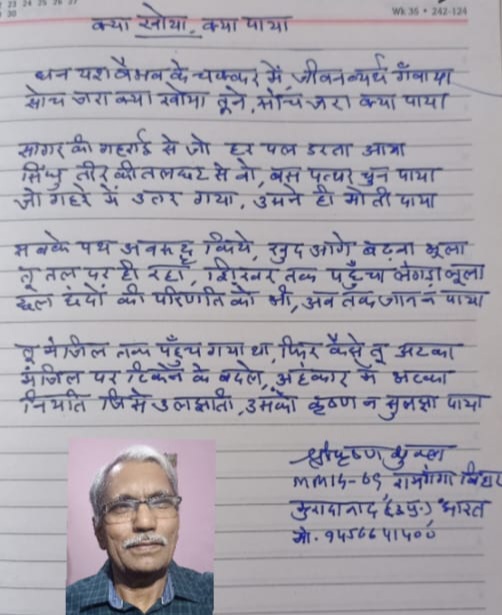 23 24 25 26 27
30
Wk 36 • 242-124
क्या खोया, क्या पाया
धन यश वैभव के चक्कर में, जीवन व्यर्थ गँवाया
सोच जरा क्या खोया तूने, सोच जरा क्या पाया
सागर की गहराई से जो हर पल डरता आया
सिंधु तीर की तलछट से वो, बस पत्थर चुन पाया
जो गहरे में उतर गया, उसने ही मोती पाया
सबके पथ अवरुद्ध किये, खुद आगे बढ़ना भूला
तू तल पर ही रहा, शिखर तक पहुँचा लँगड़ा लूला
छल छंदों की परिणति को भी, अब तक जान न पाया
तू मंजिल तक पहुँच गया था, फिर कैसे तू अटका
मंजिल पर टिकने के बदले, अहंकार में भटका
नियति जिसे उलझाती, उसको कृष्ण न सुलझा पाया
श्रीकृष्ण शुक्ल
MMIG-69, रामगंगा विहार
मुरादाबाद (उ.प्र.) भारत
मो. 9456641400